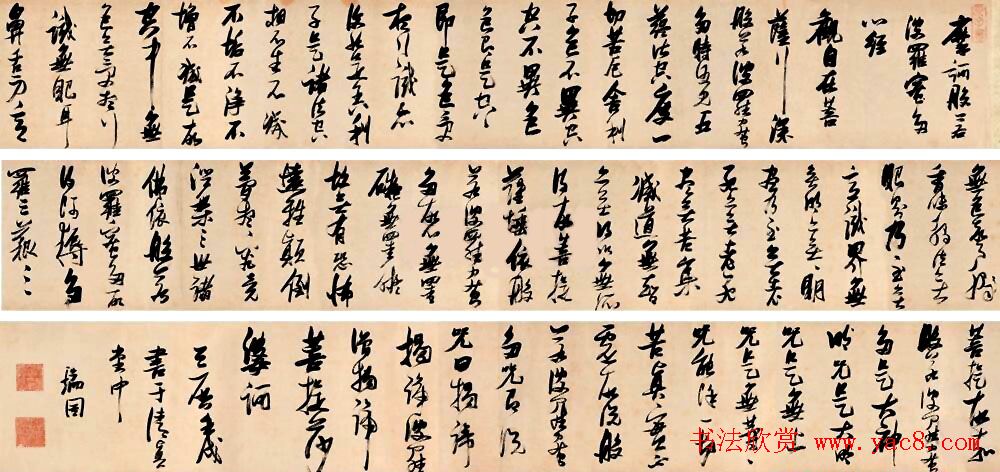 摩訶般若
波羅蜜多
心經
觀自在菩
薩行深
般若波羅蜜
多時照見五
蘊皆空度一
切苦厄舍利
子色不異空
空不異色
色即是空空
即是色受
想行識亦
復如是舍利
子是諸法空
相不生不滅
不垢不淨不
增不減是故
空中無
色無受想行
識無眼耳
鼻舌身意
無色聲香味
觸法無
眼界乃至無
意識界無
無明亦無無明
盡乃至無老
死亦無老死
盡無苦集
滅道無智
亦無得以無所
得故菩提
薩埵依般
若波羅蜜
多故心無罣
礙無罣礙
故無有恐怖
遠離顛倒
夢想究竟
涅槃三世諸
佛依般若
波羅蜜多故
得阿耨多
羅三藐三
菩提故知
般若波羅蜜
多是大神
咒是大明
咒是無上
咒是無等等
咒能除一切
苦真實不
虛故說般
若波羅蜜
多咒即說
咒曰揭諦
揭諦波羅
僧揭諦
菩提薩
婆訶
書于清真
堂中
瑞圖
书法欣赏 www.yac8.com